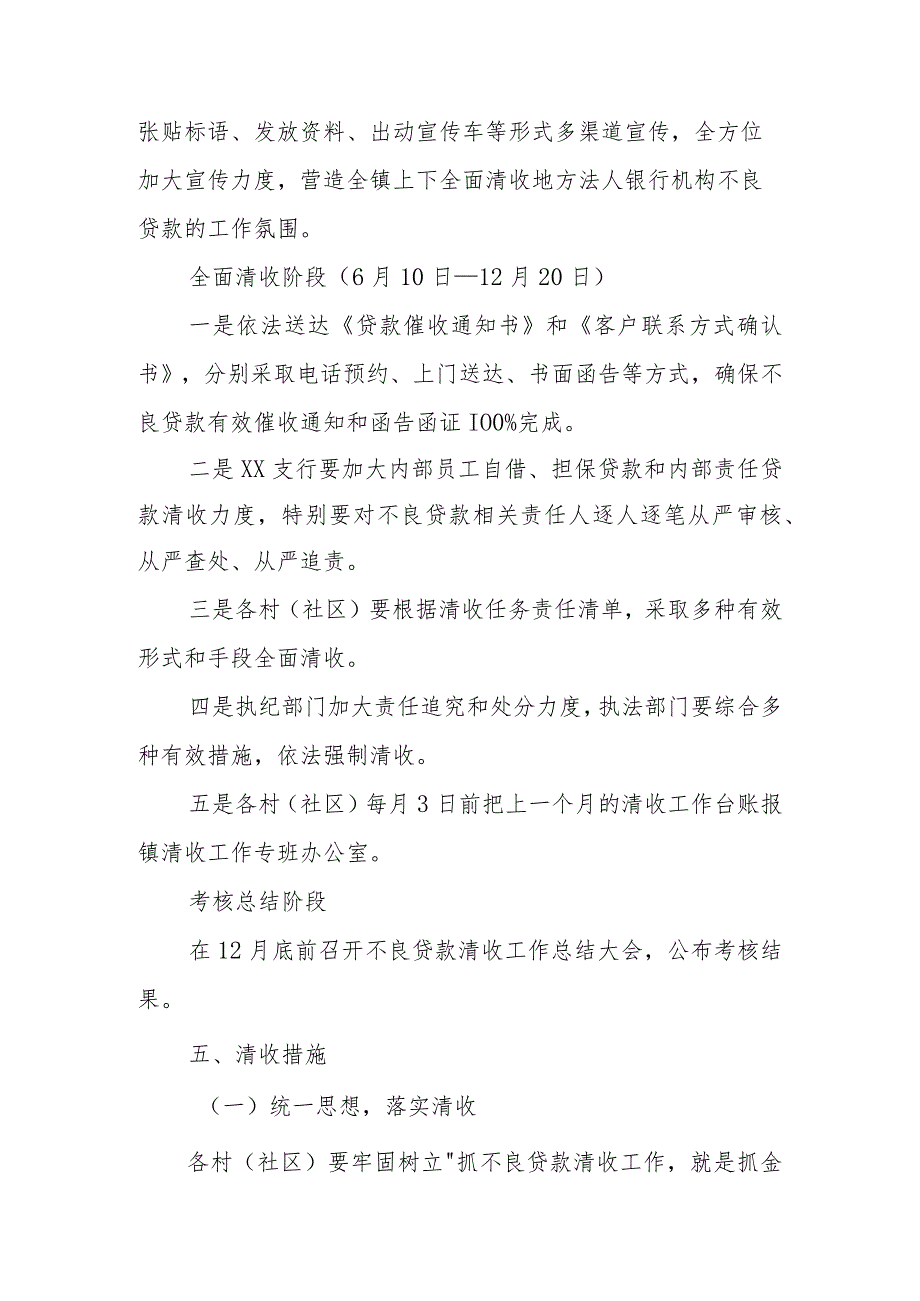 张贴标语、发放资料、出动宣传车等形式多渠道宣传，全方位
加大宣传力度，营造全镇上下全面清收地方法人银行机构不良
贷款的工作氛围。
全面清收阶段（6 月 10 日—12 月 20 日）
一是依法送达《贷款催收通知书》和《客户联系方式确认
书》，分别采取电话预约、上门送达、书面函告等方式，确保不
良贷款有效催收通知和函告函证 IOO%完成。
二是 XX 支行要加大内部员工自借、担保贷款和内部责任贷
款清收力度，特别要对不良贷款相关责任人逐人逐笔从严审核、
从严查处、从严追责。
三是各村（社区）要根据清收任务责任清单，采取多种有效
形式和手段全面清收。
四是执纪部门加大责任追究和处分力度，执法部门要综合多
种有效措施，依法强制清收。
五是各村（社区）每月 3 日前把上一个月的清收工作台账报
镇清收工作专班办公室。
考核总结阶段
在 12 月底前召开不良贷款清收工作总结大会，公布考核结
果。
五、清收措施
（一）统一思想，落实清收
各村（社区）要牢固树立"抓不良贷款清收工作，就是抓金